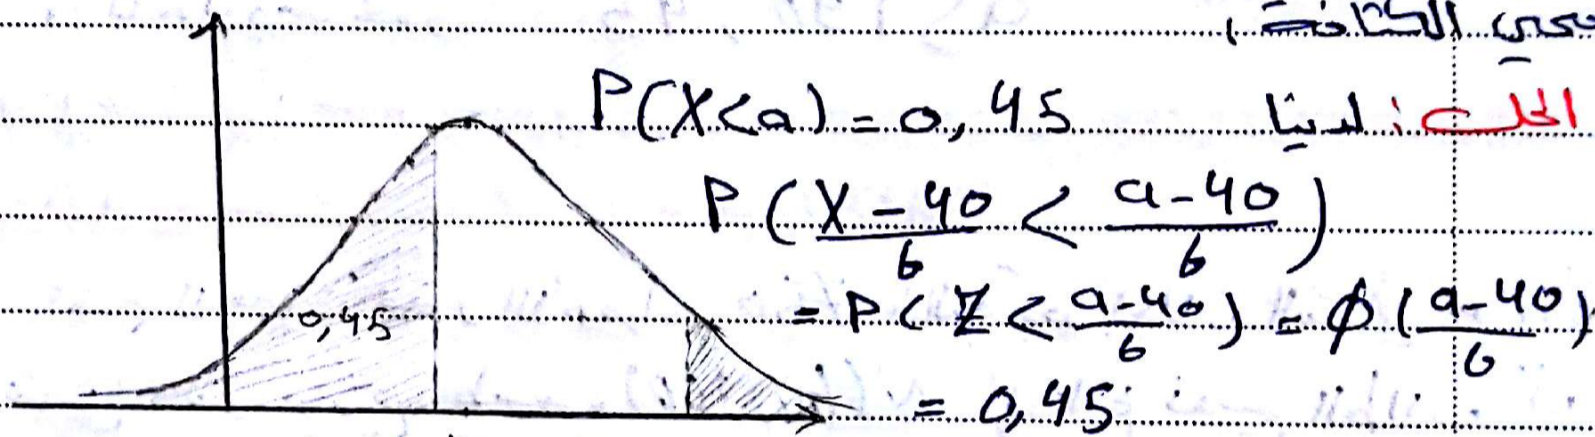 الكثافة
الحل: لدينا P(X<a) = 0,45
P(X-40/6 < a-40/6)
= P(Z < a-40/6) = φ(a-40/6)
0,45
= 0,45